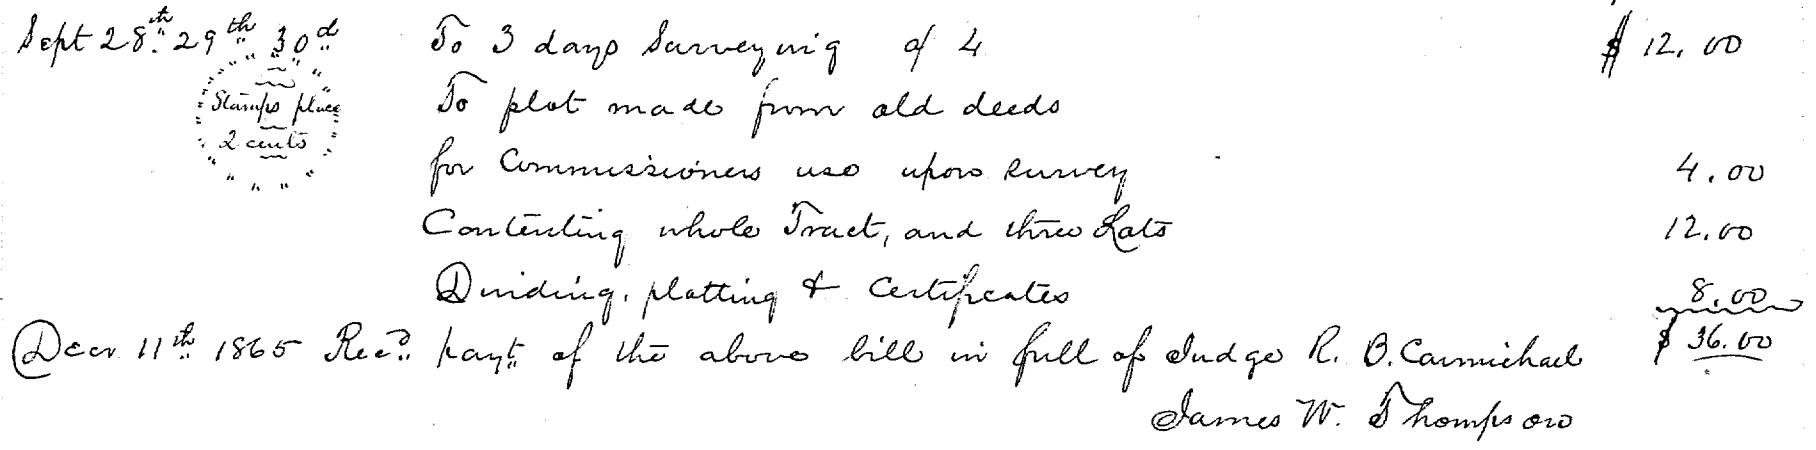 Sept 28th 29th 30d To 3 days Surveying @ 4 $ 12.00
Stamps place
To plot made from old deeds
2 cents
for Commissioners use upon survey 4.00
Contenting whole Tract, and three Lots 12.00
Dividing, plotting & Certificates 8.00
Decr 11th 1865 Recd payt of the above bill in full of Judge R. B. Carmichael $ 36.00
James W. Thompson